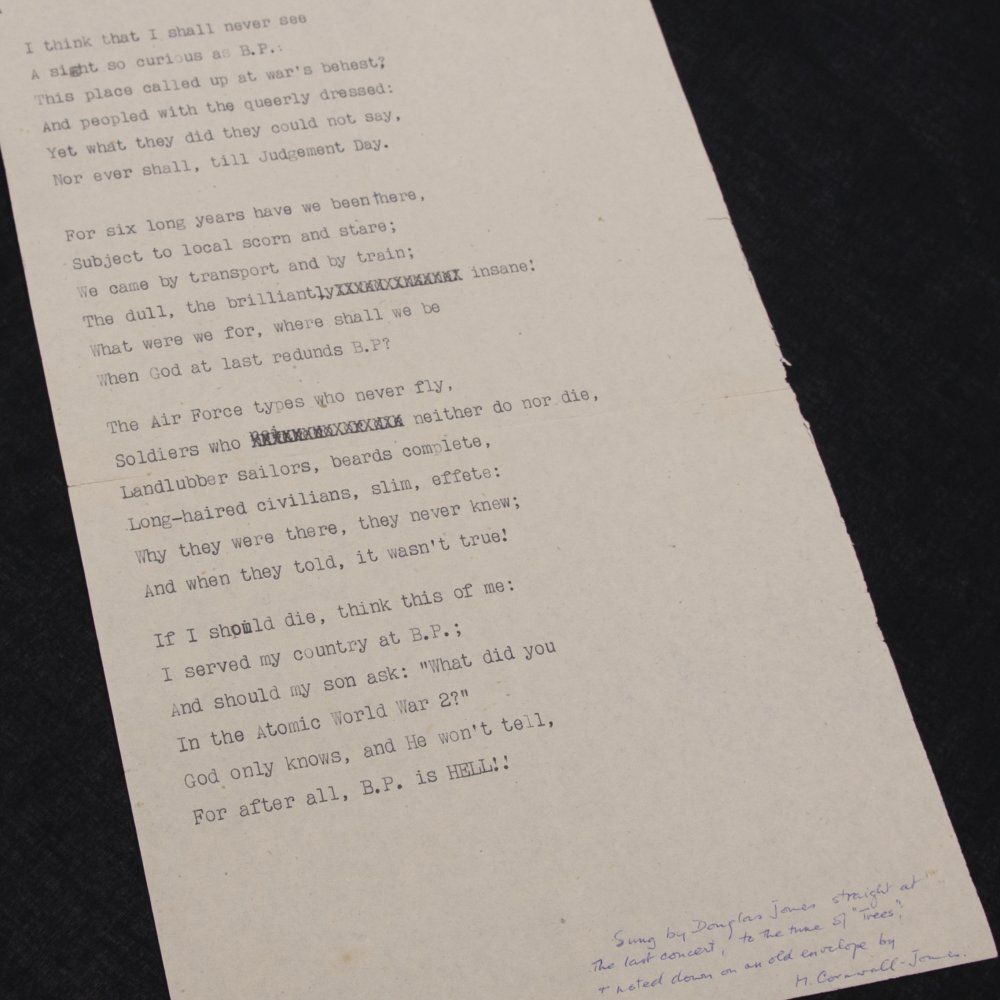 I think that I shall never see
A sight so curious as B.P.:
This place called up at war's behest;
And peopled with the queerly dressed:
Yet what they did they could not say,
Nor ever shall, till Judgement Day.
For six long years have we been there,
Subject to local scorn and stare;
We came by transport and by train;
The dull, the brilliantly insane!
What were we for, where shall we be
When God at last redunds B.P?
The Air Force types who never fly,
Soldiers who neither do nor die,
Landlubber sailors, beards complete,
Long-haired civilians, slim, effete:
Why they were there, they never knew;
And when they told, it wasn't true!
If I should die, think this of me:
I served my country at B.P.;
And should my son ask: "What did you
In the Atomic World War 2?"
God only knows, and He won't tell,
For after all, B.P. is HELL!!
Sung by Douglas Jones straight at
the last concert, to the tune of "Trees",
+ noted down on an old envelope by
M. Cornwall-Jones.